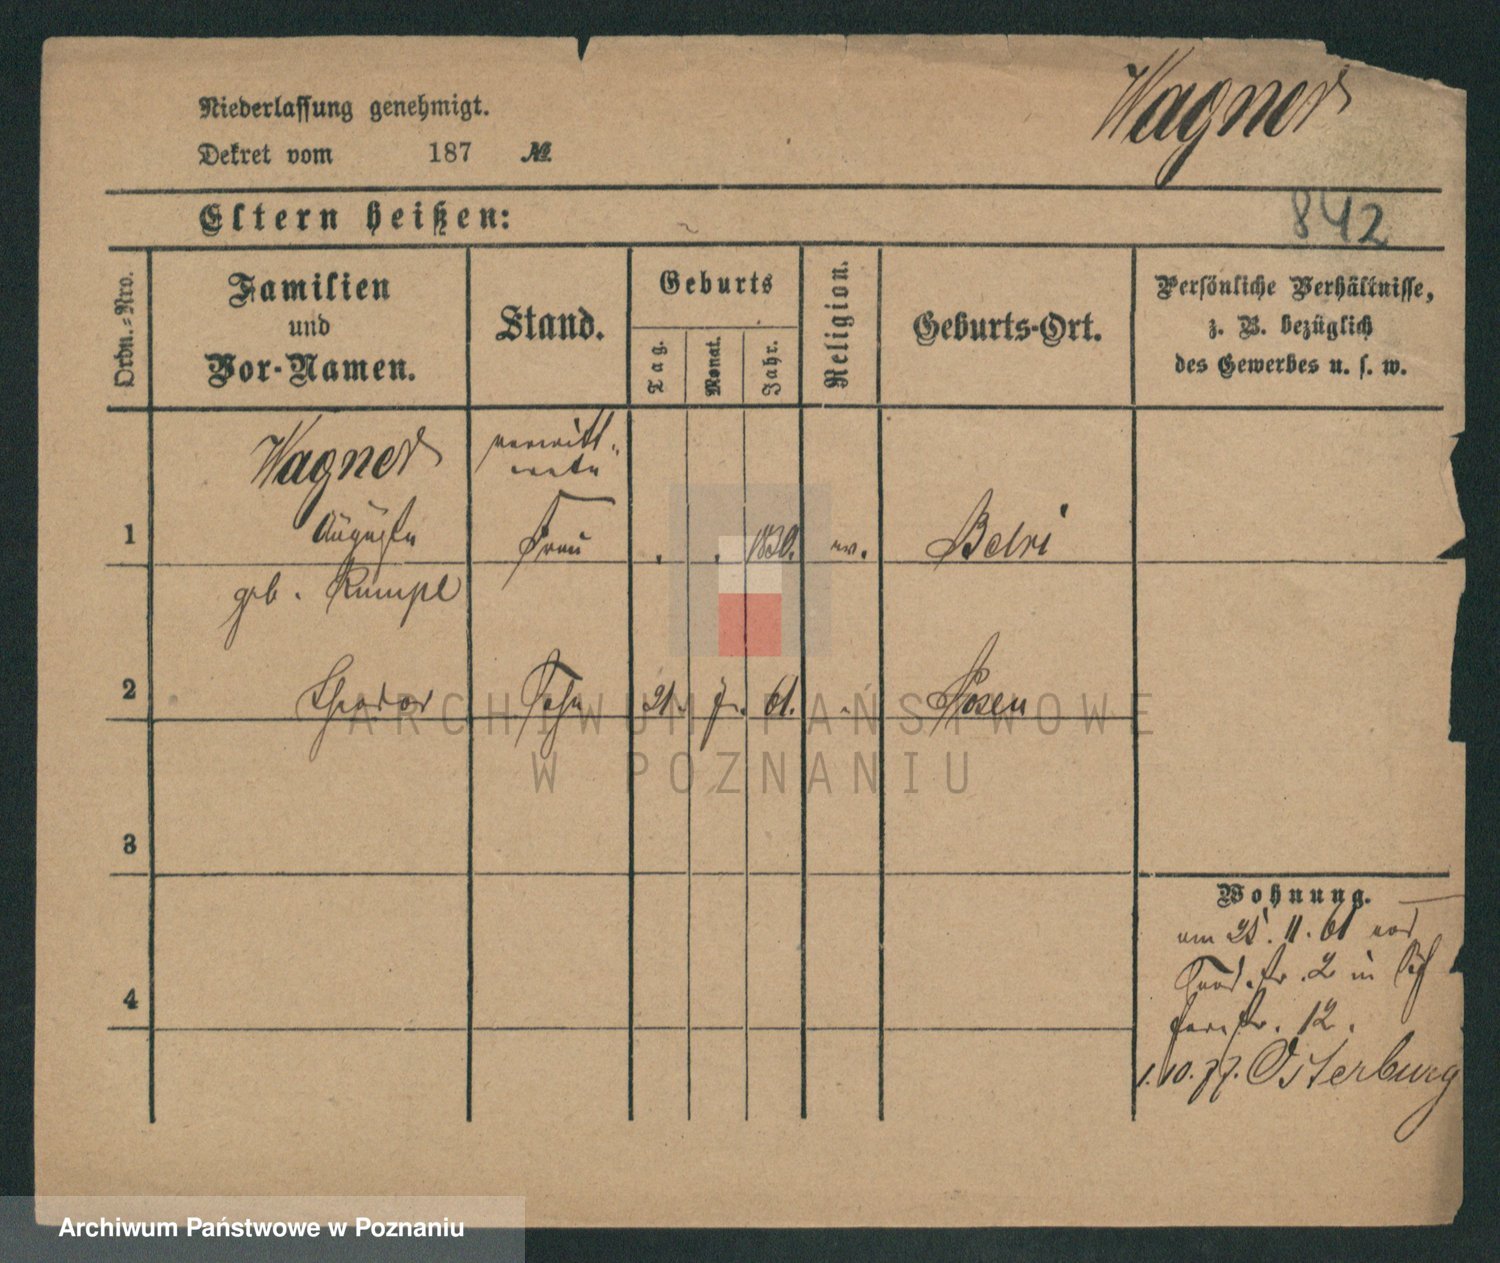 Wagner
Niederlassung genehmigt.
Dekret vom 187 №
842
Eltern heißen:
Ordn.=Nro.
Familien
und
Vor-Namen.
Stand.
Geburts
Tag.
Monat.
Jahr.
Religion.
Geburts-Ort.
Persönliche Verhältnisse,
z. B. bezüglich
des Gewerbes u. s. w.
1
Wagner
Auguste
geb. Rumpel
verwitt-
wete
Frau
1830.
ev.
2
Theodor
Sohn
21. 7. 61.
Posen
3
4
Wohnung.
am 25. 11. 61 von
2 in
str. 12.
1.10.77. Osterburg
ARCHIWUM PAŃSTWOWE
W POZNANIU
Archiwum Państwowe w Poznaniu